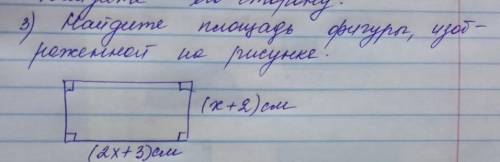 3) Найдите площадь фигуры, изоб-
раженной на рисунке.
(x+2)см
(2x+3)см